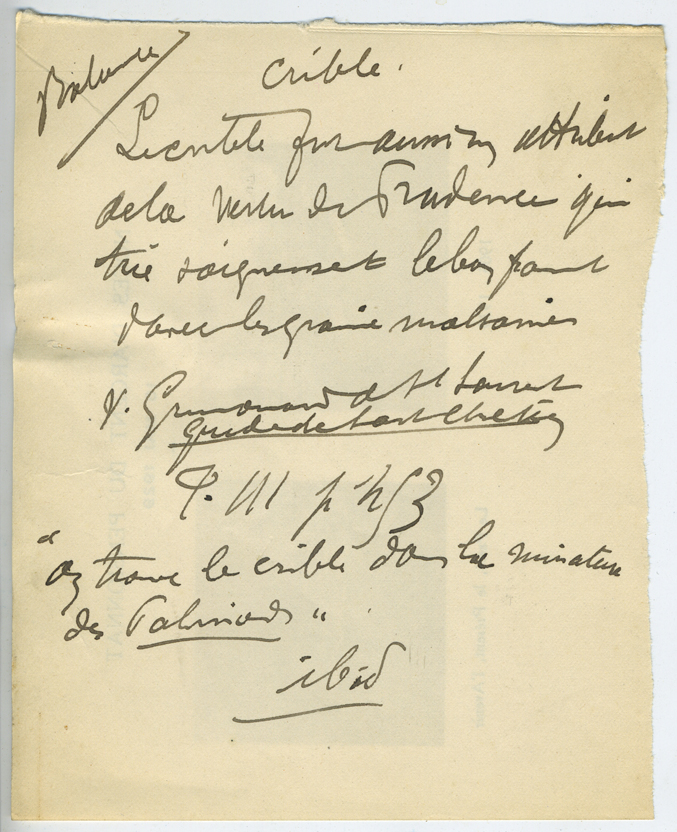 Balance
Crible.
Le crible fut aussi un attribut
de la vertu de Prudence qui
trie soigneuset le bon fromt
d'avec les graines malsaines
V. Grimouard de St Laurent
guide de l'art chrétien
T. III p.
"on trouve le crible dans la miniature
des Palinods"
ibid